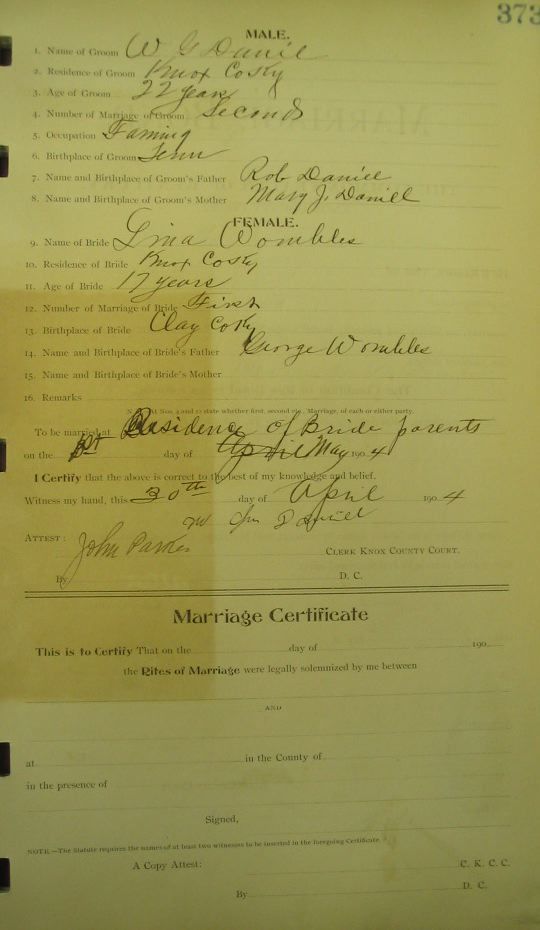 373
MALE.
1. Name of Groom W G Daniel
2. Residence of Groom Knox Co Ky
3. Age of Groom 22 years
4. Number of Marriage of Groom Second
5. Occupation Faming
6. Birthplace of Groom Tenn
7. Name and Birthplace of Groom's Father Rob Daniel
8. Name and Birthplace of Groom's Mother Mary J. Daniel
FEMALE.
9. Name of Bride Wombles
10. Residence of Bride Knox Co Ky
11. Age of Bride 17 years
12. Number of Marriage of Bride First
13. Birthplace of Bride Clay Co Ky
14. Name and Birthplace of Bride's Father George Wombles
15. Name and Birthplace of Bride's Mother
16. Remarks
At Nos. 4 and 12 state whether first, second etc., Marriage, of each or either party.
To be married at Residence of Bride parents
on the 1st day of April May 1904
I Certify that the above is correct to the best of my knowledge and belief.
Witness my hand, this 30th day of April 1904
Daniel
ATTEST: John Parker
CLERK KNOX COUNTY COURT.
By D. C.
Marriage Certificate
This is to Certify That on the day of 190
the Rites of Marriage were legally solemnized by me between
AND
at in the County of
in the presence of
Signed,
NOTE.—The Statute requires the names of at least two witnesses to be inserted in the foregoing Certificate.
A Copy Attest: C. K. C. C.
By D. C.